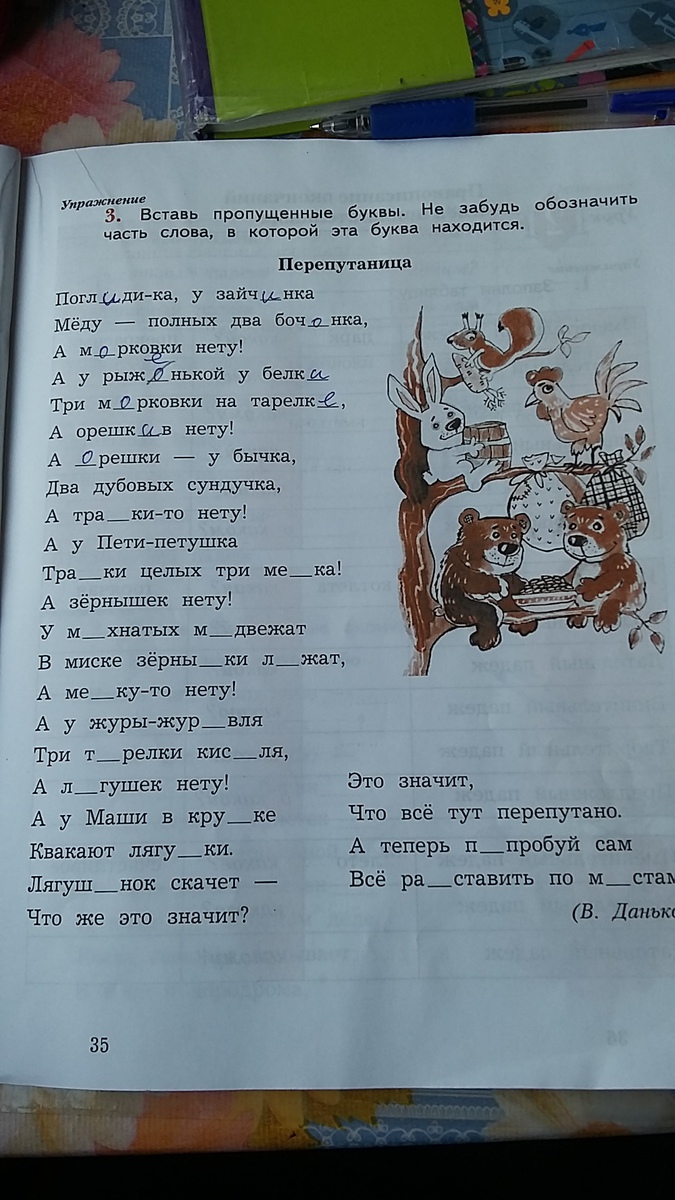 Упражнение
3. Вставь пропущенные буквы. Не забудь обозначить
часть слова, в которой эта буква находится.
Перепутаница
Погляди-ка, у зайчинка
Мёду — полных два бочонка,
А морковки нету!
А у рыженькой у белки
Три морковки на тарелке,
А орешкив нету!
А орешки — у бычка,
Два дубовых сундучка,
А тра__ки-то нету!
А у Пети-петушка
Тра__ки целых три ме__ка!
А зёрнышек нету!
У м__хнатых м__двежат
В миске зёрны__ки л__жат,
А ме__ку-то нету!
А у журы-жур__вля
Три т__релки кис__ля,
А л__гушек нету!
А у Маши в кру__ке
Квакают лягу__ки.
Лягуш__нок скачет —
Что же это значит?
Это значит,
Что всё тут перепутано.
А теперь п__пробуй сам
Всё ра__ставить по м__стам
(В. Данько
35